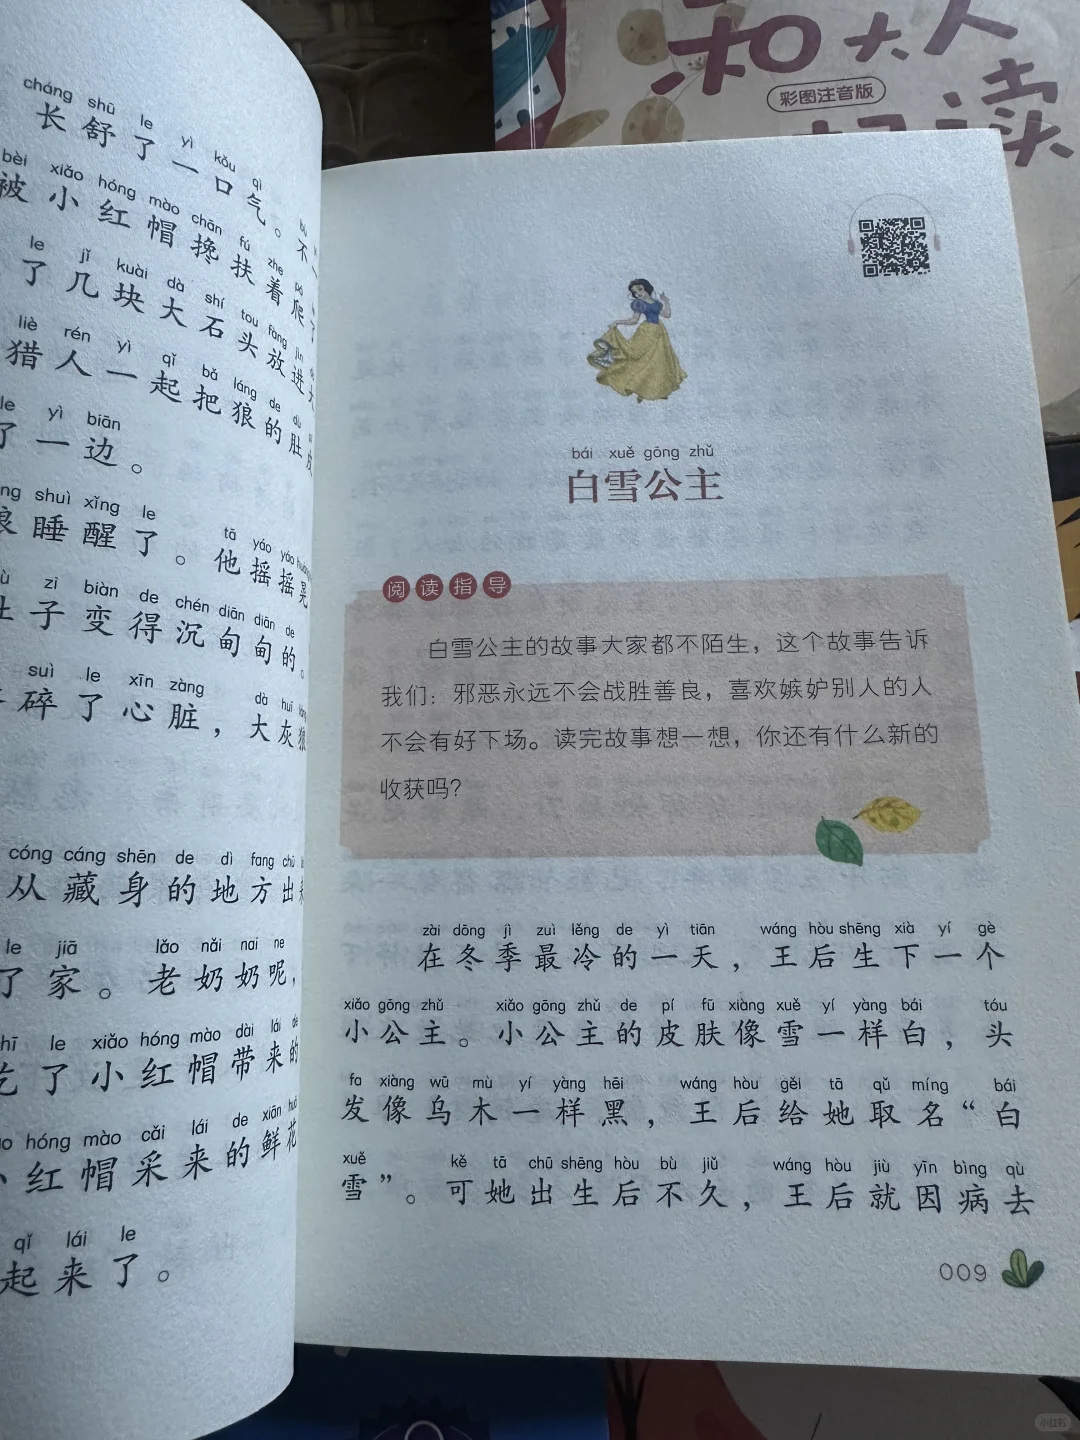 cháng shū le yì kǒu qì
长舒了一口气。不
bèi xiǎo hóng mào chān fú zhe pá
被小红帽搀扶着爬
le jǐ kuài dà shí tou fàng jìn
了几块大石头放进
liè rén yì qǐ bǎ láng de dù
猎人一起把狼的肚皮
le yì biān
了一边。
shuì xǐng le tā yáo yáo
狼睡醒了。他摇摇晃
zi biàn de chén diān diān de
子变得沉甸甸的。
suì le xīn zàng dà huī
碎了心脏，大灰狼
cóng cáng shēn de dì fang chū
从藏身的地方出来
le jiā lǎo nǎi nai ne
了家。老奶奶呢，
le xiǎo hóng mào dài lái de
吃了小红帽带来的
hóng mào cǎi lái de xiān huā
小红帽采来的鲜花
qǐ lái le
起来了。
和大人
彩图注音版
读
bái xuě gōng zhǔ
白雪公主
阅读指导
白雪公主的故事大家都不陌生，这个故事告诉
我们：邪恶永远不会战胜善良，喜欢嫉妒别人的人
不会有好下场。读完故事想一想，你还有什么新的
收获吗？
zài dōng jì zuì lěng de yì tiān wáng hòu shēng xià yí gè
在冬季最冷的一天，王后生下一个
xiǎo gōng zhǔ xiǎo gōng zhǔ de pí fū xiàng xuě yí yàng bái tóu
小公主。小公主的皮肤像雪一样白，头
fa xiàng wū mù yí yàng hēi wáng hòu gěi tā qǔ míng bái
发像乌木一样黑，王后给她取名“白
xuě kě tā chū shēng hòu bù jiǔ wáng hòu jiù yīn bìng qù
雪”。可她出生后不久，王后就因病去
009
小红书